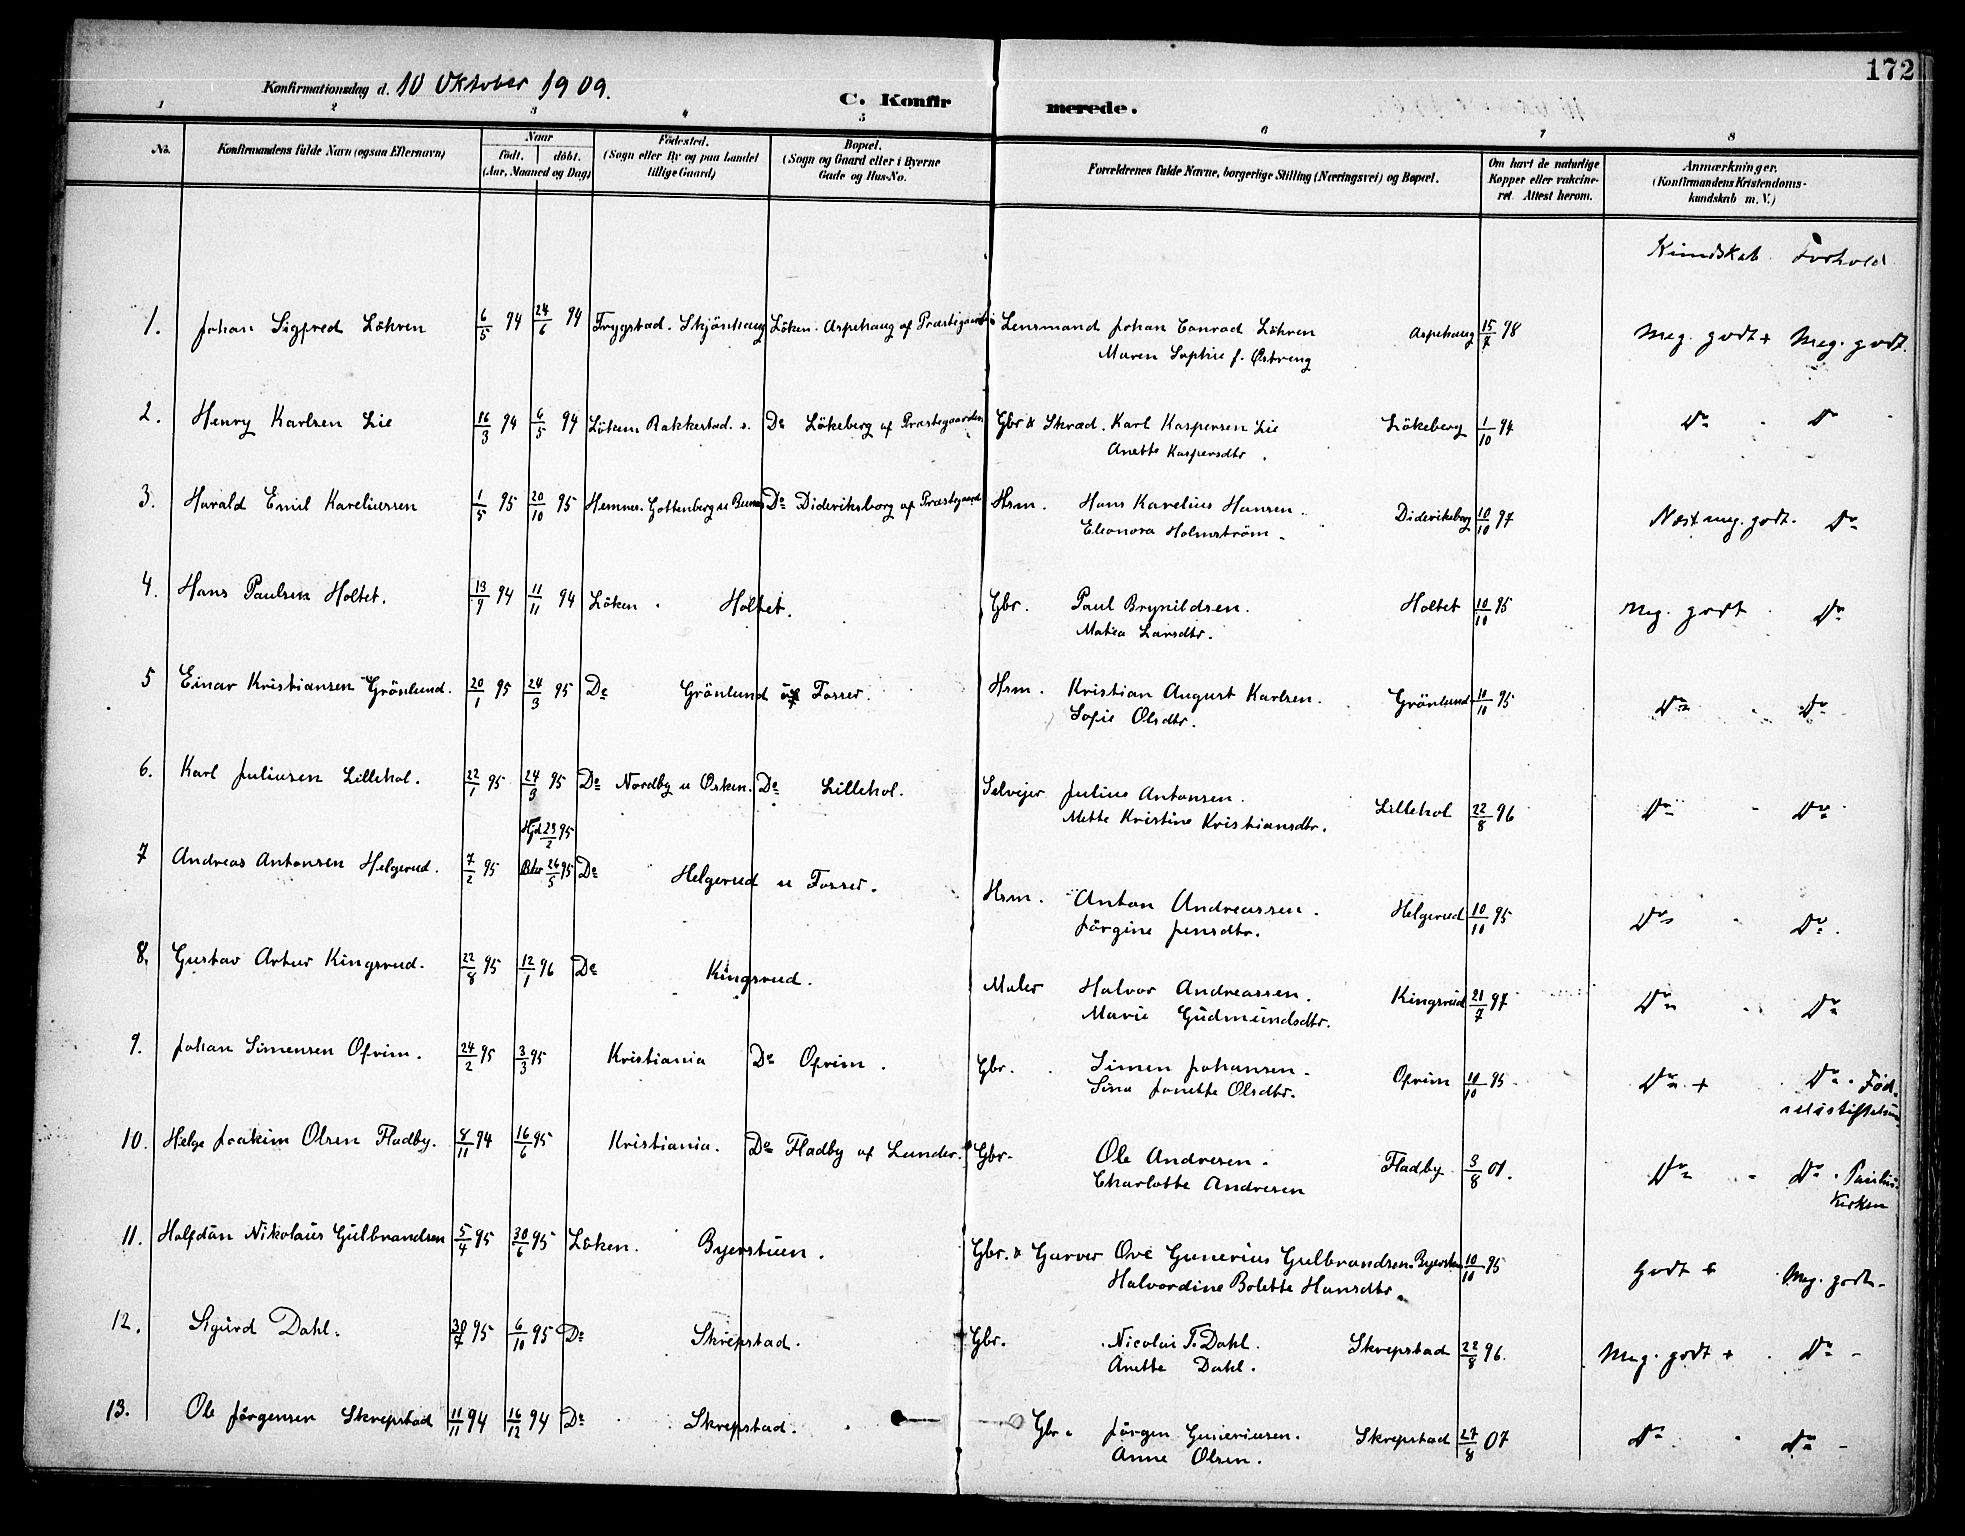 172
Konfirmationsdag d. 10 Oktober 1909.
C. Konfir merede.
1 2 3 4 5 6 7 8
No.
Konfirmandens fulde Navn (ogsaa Efternavn)
Naar
født. døbt.
(Aar, Maaned og Dag)
Fødested.
(Sogn eller By og paa Landet
tillige Gaard)
Bopæl.
(Sogn og Gaard eller i Byerne
Gade og Hus-No.
Forældrenes fulde Navne, borgerlige Stilling (Næringsvei) og Bopæl.
Om havt de naturlige
Kopper eller vakcine-
ret. Attest herom.
Anmærkninger.
(Konfirmandens Kristendoms-
kundskab m. V.)
Kundskab Forhold
1. Johan Sigfred Löhren 6/5 94 24/6 94 Trygstad. Skjönhaug Löken. Aspehaug af Præstegaarden Lensmand Johan Conrad Löhren Aspehaug 15/7 98 Meg. godt + Meg. godt.
Maren Sophie f. Østreng
2. Henry Karlsen Lie 16/3 94 6/5 94 Löken Rakkestad. s. Do Lökeberg af Præstegaarden Gbr & Skræd. Karl Kaspersen Lie Lökeberg 1/10 94 Do Do
Anette Kaspersdtr.
3. Harald Emil Kareliussen 1/5 95 20/10 95 Hemnes. Gottenberg u Do Dideriksborg af Præstegaard Hsm. Hans Karelius Hansen. Dideriksborg 10/10 97 Næst meg. godt. Do
Eleonora Holmström.
4. Hans Paulsen Holtet. 13/9 94 11/11 94 Löken. Holtet. Gbr. Paul Brynildsen. Holtet 10/10 95 Meg. godt Do
Matea Larsdtr.
5 Einar Kristiansen Grönlund. 20/1 95 24/3 95 Do Grönlund af Fosser. Hsm. Kristian August Karlsen. Grönlund 10/10 95 Do Do
Sofie Olsdtr.
6. Karl Juliusen Lillehol. 22/1 95 24/3 95 Do Nordby u Østen. Do Lillehol. Selvejer Julius Antonsen. Lillehol 22/8 96 Do Do
Mette Kristine Kristiansdtr.
Hjd 23/2 95
7 Andreas Antonsen Helgerud. 7/2 95 26/5 95 Do Helgerud u Fosser. Hsm. Anton Andreassen. Helgerud 10/10 95 Do Do.
Jörgine Jensdtr.
8. Gustav Artur Kingsrud. 22/8 95 12/1 96 Do Kingsrud. Maler Halvor Andreassen. Kingsrud 21/7 97 Do Do
Marie Gudmundsdtr.
9. Johan Simensen Ofrim. 24/2 95 3/3 95 Kristiania Do Ofrim. Gbr. Simen Johansen. Ofrim 10/10 95 Do + Do. Fød-
Sina Janette Olsdtr. selsstiftelsen
10. Helge Joakim Olsen Fladby. 8/11 94 16/6 95 Kristiania. Do Fladby af Lunder. Gbr. Ole Andresen. Fladby 3/8 01. Do Do. Paulus
Charlotte Andresen kirken
11. Halfdan Nikolaus Gulbrandsen 5/4 95 30/6 95 Löken. Byerstuen. Gbr. & Garver Ove Gunerius Gulbrandsen. Byerstuen 10/10 95 Godt + Meg. godt.
Halvordine Bolette Hansdtr.
12. Sigurd Dahl. 30/7 95 6/10 95 Do Skrepstad. Gbr. Nicolai T. Dahl. Skrepstad 22/8 96. Meg. godt + Do
Anette Dahl.
13. Ole Jörgensen Skrepstad 11/11 94 16/12 94 Do Skrepstad. Gbr. Jörgen Guneriusen. Skrepstad 27/8 07 Do Do
Anne Olsen.